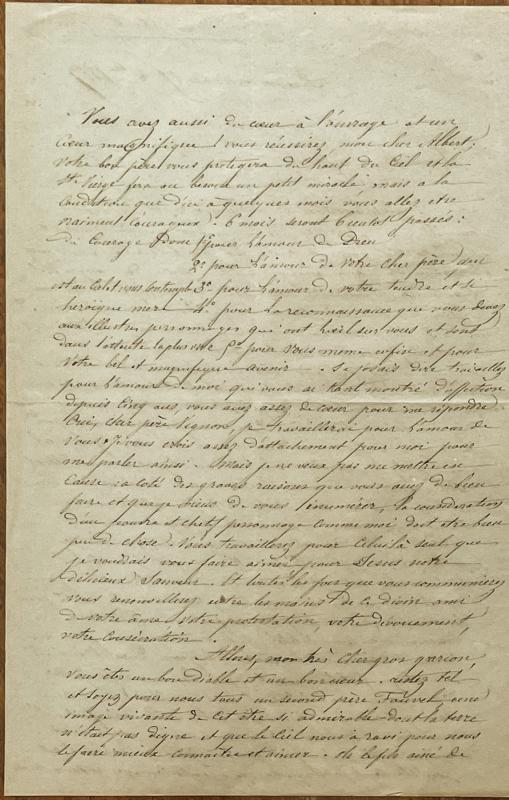 Vous avez aussi du cœur à l'ouvrage et un
cœur magnifique ! vous réussirez, mon cher Albert,
votre bon père vous protégera du haut du Ciel et la
Ste Vierge fera au besoin un petit miracle, mais à la
condition que d'ici à quelques mois vous allez être
vraiment courageux. 6 mois seront bientôt passés :
du Courage Donc 1º pour l'amour de Dieu
2º pour l'amour de votre cher père qui
est au Ciel et vous contemple 3º pour l'amour de votre tendre et si
héroïque mère 4º pour la reconnaissance que vous devez
aux illustres personnages qui ont l'œil sur vous et sont
dans l'attente la plus vive 5º pour vous même enfin et pour
votre bel et magnifique avenir. Si j'osais dire travaillez
pour l'amour de moi qui vous ai tant montré d'affection
depuis cinq ans, vous avez assez de cœur pour me répondre
Oui, cher père Vignon, je travaillerai pour l'amour de
Vous. Je vous crois assez d'attachement pour moi pour
me parler ainsi. Mais je ne veux pas me mettre en
Cause à côté des graves raisons que vous avez de bien
faire et que je viens de vous énumérer, la considération
d'un pauvre et chétif personnage comme moi doit être bien
peu de chose. Vous travaillerez pour Celui là seul que
je voudrais vous faire aimer pour Jésus notre
délicieux Sauveur. Et toutes les fois que vous communierez
vous renouvellerez entre les mains de ce divin ami
de votre âme votre protestation, votre dévouement,
votre Consécration.
Allons, mon très cher gros garçon,
vous êtes un bon diable et un bon cœur. restez tel
et soyez pour nous tous un second père Fauvel une
image vivante de cet être si admirable dont la terre
n'était pas digne et que le Ciel nous a ravi pour nous
le faire mieux connaître et aimer. de